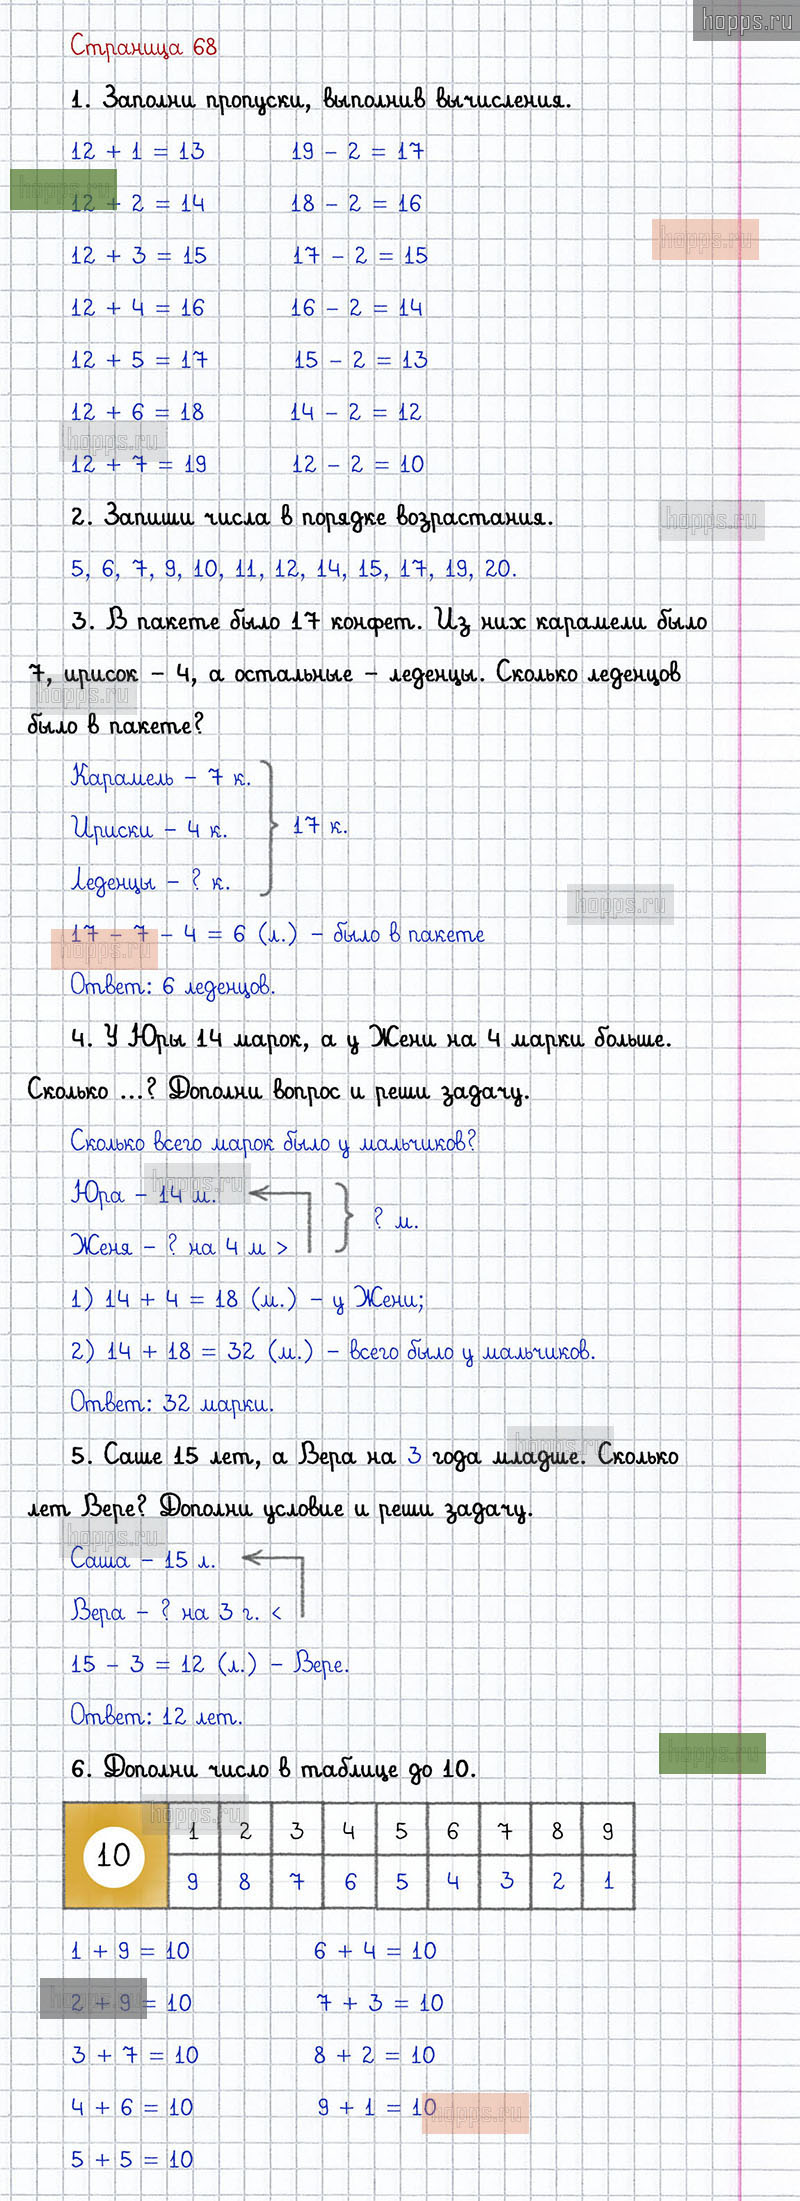 hopps.ru
Страница 68
1. Заполни пропуски, выполнив вычисления.
12 + 1 = 13 19 - 2 = 17
hopps.ru
12 + 2 = 14 18 - 2 = 16
hopps.ru
12 + 3 = 15 17 - 2 = 15
12 + 4 = 16 16 - 2 = 14
12 + 5 = 17 15 - 2 = 13
12 + 6 = 18 14 - 2 = 12
hopps.ru
12 + 7 = 19 12 - 2 = 10
2. Запиши числа в порядке возрастания.
hopps.ru
5, 6, 7, 9, 10, 11, 12, 14, 15, 17, 19, 20.
3. В пакете было 17 конфет. Из них карамели было
7, ирисок - 4, а остальные - леденцы. Сколько леденцов
hopps.ru
было в пакете?
Карамель - 7 к.
Ириски - 4 к. 17 к.
Леденцы - ? к.
hopps.ru
17 - 7 - 4 = 6 (л.) - было в пакете
hopps.ru
Ответ: 6 леденцов.
4. У Юры 14 марок, а у Жени на 4 марки больше.
Сколько ...? Дополни вопрос и реши задачу.
Сколько всего марок было у мальчиков?
hopps.ru
Юра - 14 м.
? м.
Женя - ? на 4 м >
1) 14 + 4 = 18 (м.) - у Жени;
2) 14 + 18 = 32 (м.) - всего было у мальчиков.
Ответ: 32 марки.
hopps.ru
5. Саше 15 лет, а Вера на 3 года младше. Сколько
лет Вере? Дополни условие и реши задачу.
hopps.ru
Саша - 15 л.
Вера - ? на 3 г. <
15 - 3 = 12 (л.) - Вере.
Ответ: 12 лет.
hopps.ru
6. Дополни число в таблице до 10.
hopps.ru
1 2 3 4 5 6 7 8 9
10
9 8 7 6 5 4 3 2 1
1 + 9 = 10 6 + 4 = 10
hopps.ru
2 + 9 = 10 7 + 3 = 10
3 + 7 = 10 8 + 2 = 10
4 + 6 = 10 9 + 1 = 10
hopps.ru
5 + 5 = 10